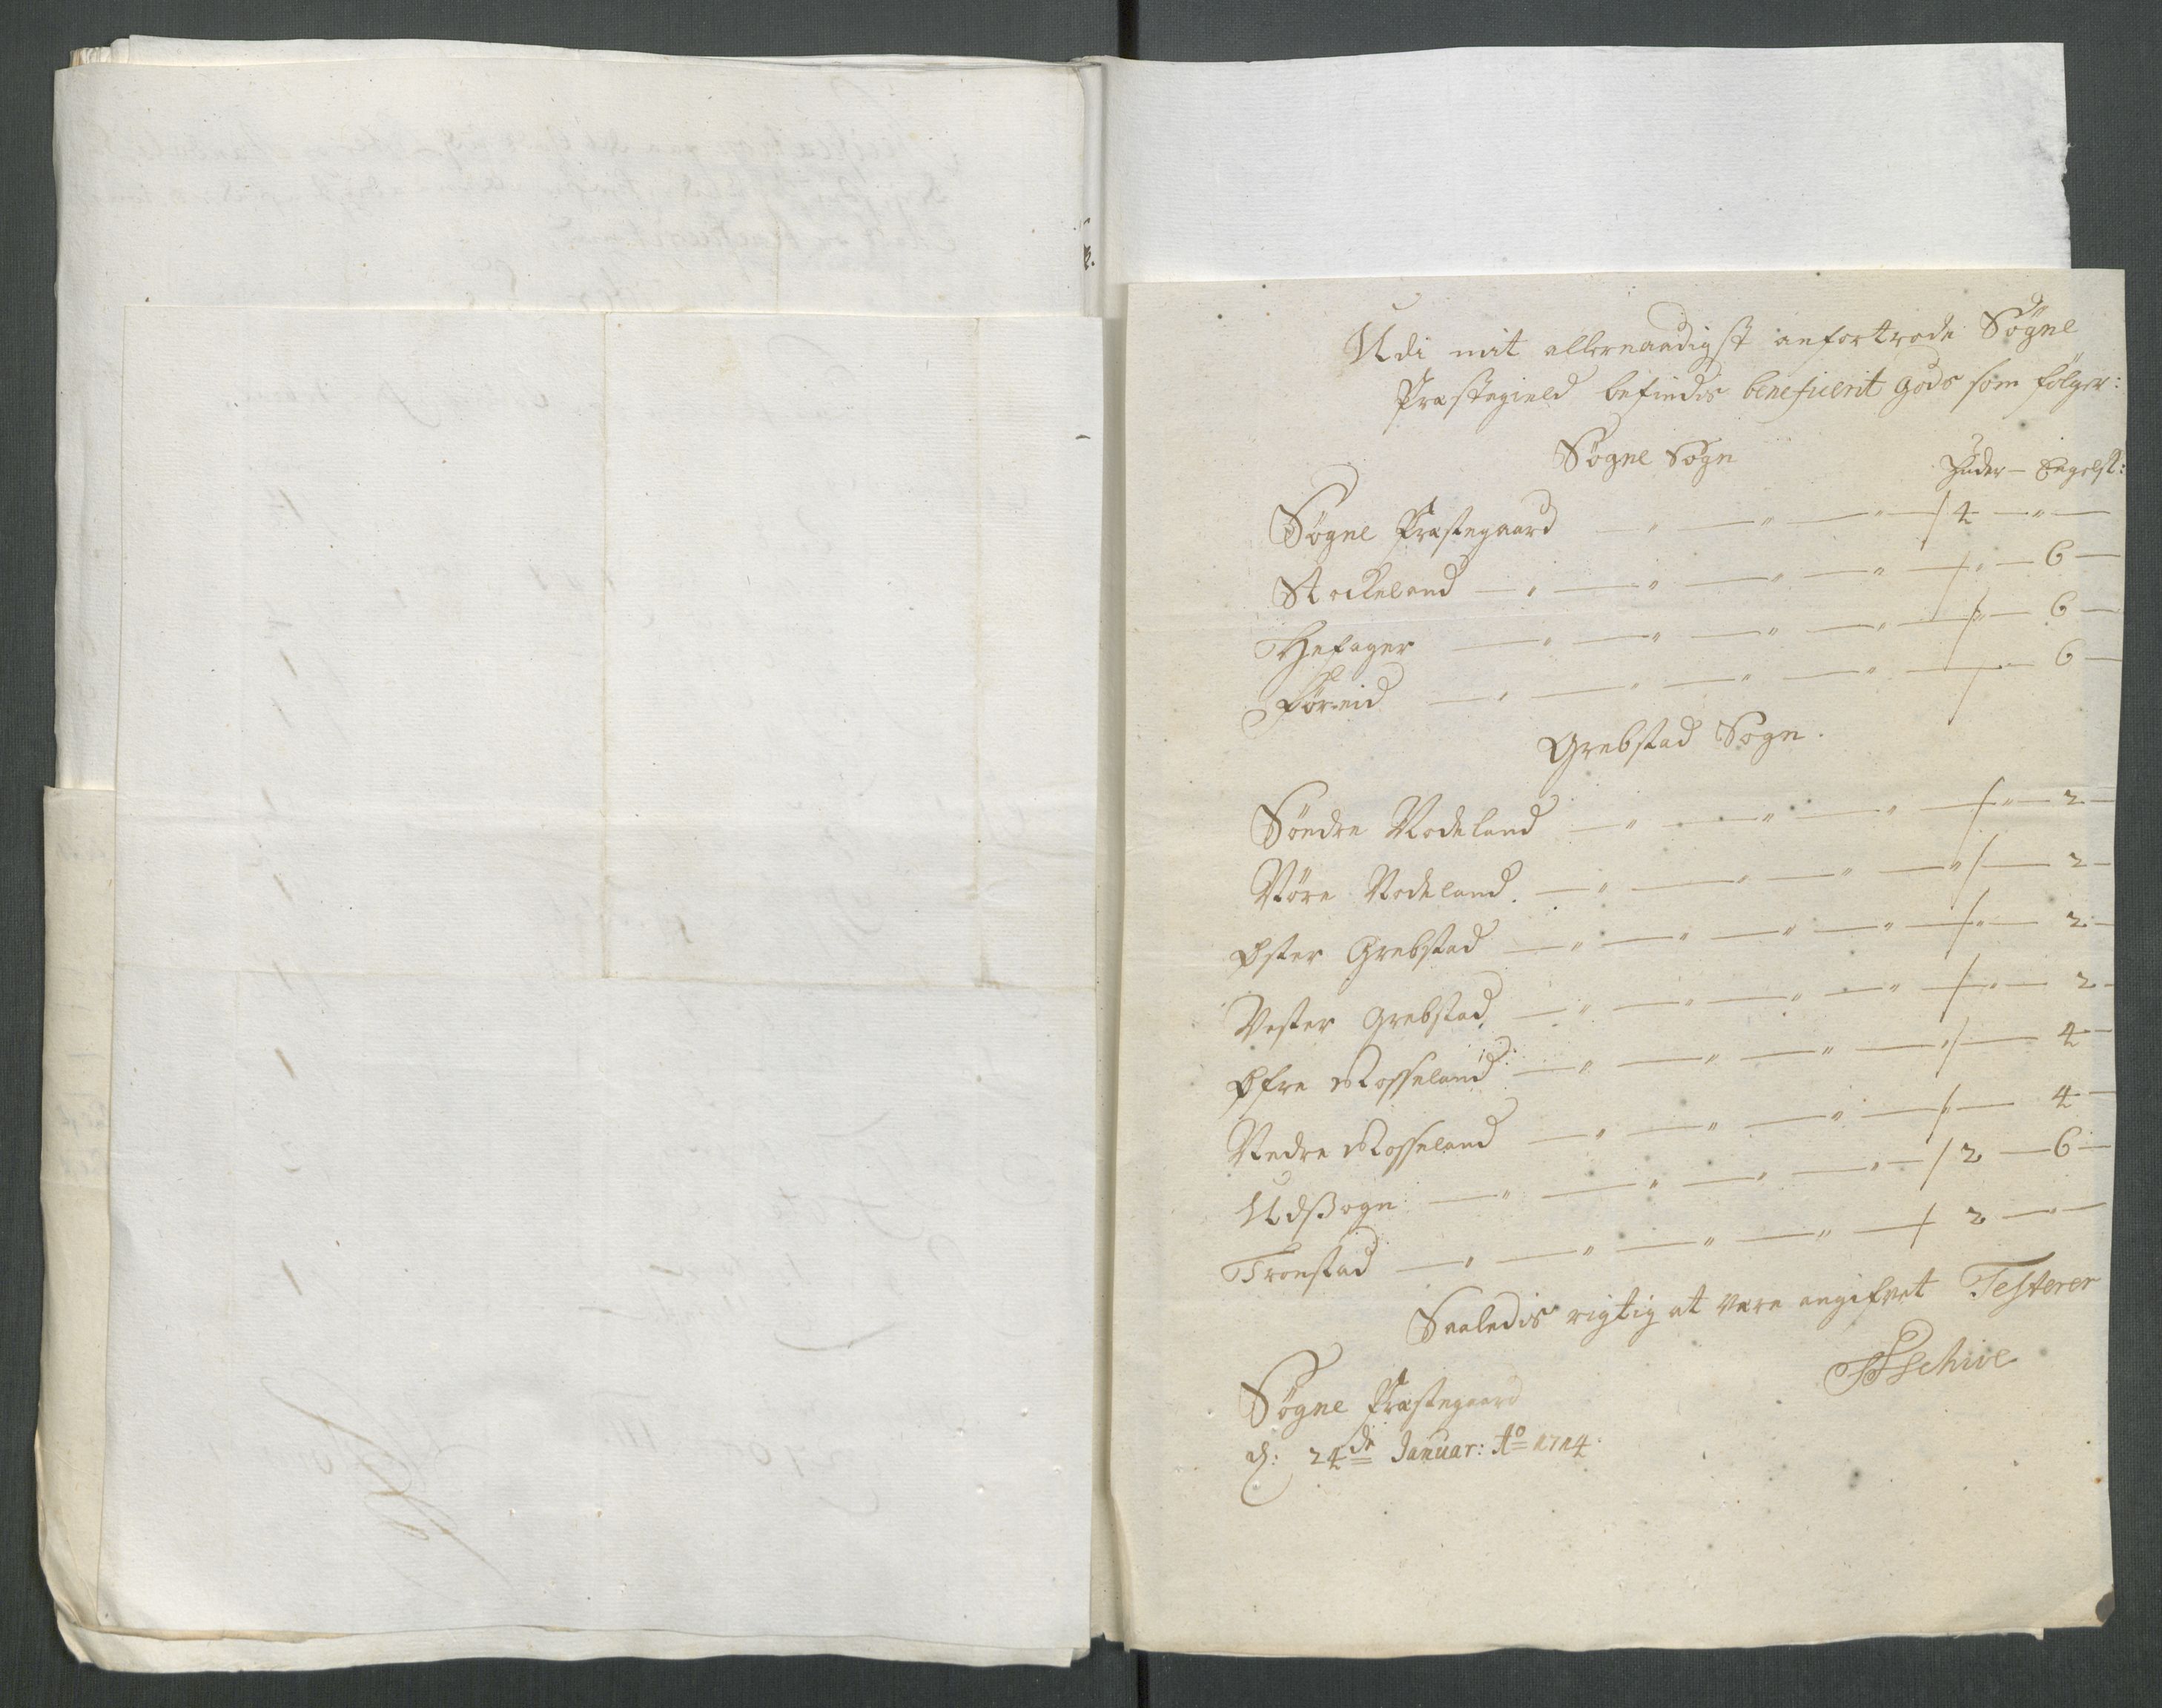 Udi mit allernaadigst anfortrode Søgne
Præstegield befindis beneficerit gods som følger:
Søgne Sogn
Huder — Engelsk:
Søgne Præstegaard — " — " — " — / 4 — " —
Stockeland — " — " — " — " — / " — 6 —
Hefager — " — " — " — " — / " — 6 —
Føreid — " — " — " — " — / — 6 —
Grebstad Sogn.
Søndre Rodeland — " — " — " — / " — 2 —
Nøre Rodeland. — " — " — " — " / — 2 —
Øster Grebstad — " — " — " — " — / " — 2 —
Vester Grebstad — " — " — " — " — / " — 2 —
Øfre Rosseland — " — " — " — " / — 4 —
Nedre Rosseland — " — " — " — / — 4 —
Udsogn — " — " — " — " — / 2 — 6 —
Tronstad — " — " — " — " — / 2 — " —
Saaledis rigtig at være angifvet Testerer
Schive
Søgne Præstegaard
d: 24de Januar: Ao 1714.